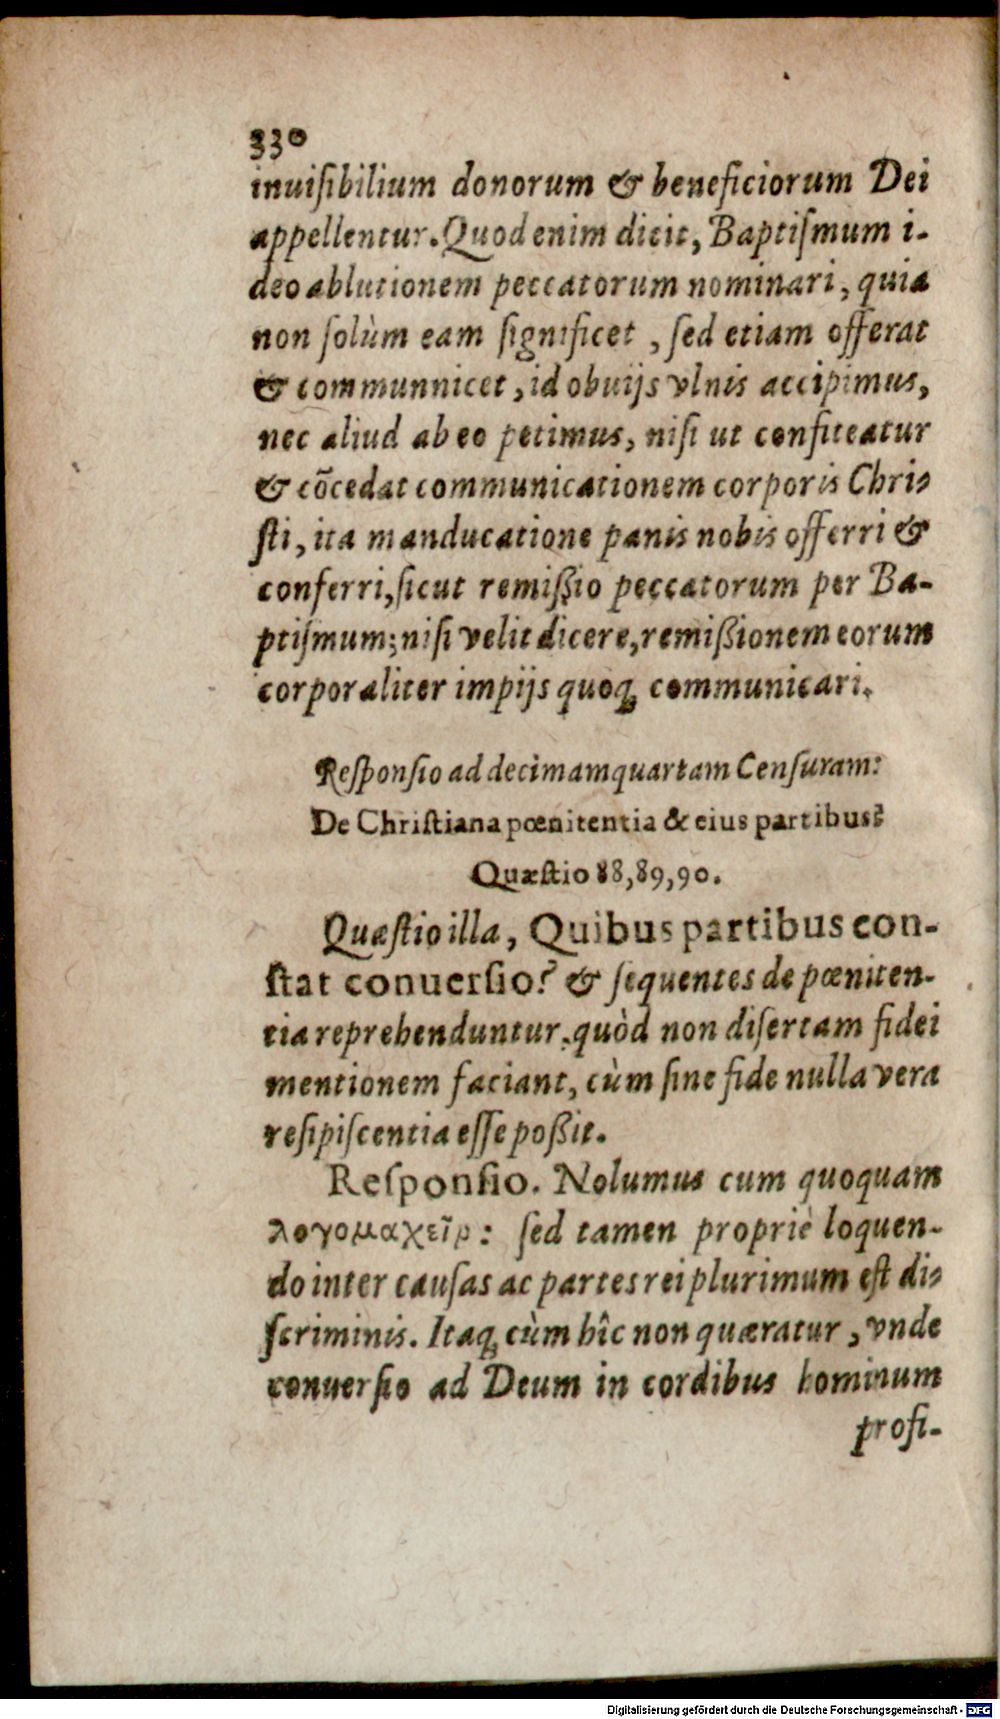 330
inuiſibilium donorum & beneficiorum Dei
appellentur. Quod enim dicit, Baptiſmum i-
deo ablutionem peccatorum nominari, quia
non ſolùm eam ſignificet, ſed etiam offerat
& communnicet, id obuijs vlnis accipimus,
nec aliud ab eo petimus, niſi ut confiteatur
& cõcedat communicationem corporis Chri-
ſti, ita manducatione panis nobis offerri &
conferri, ſicut remiſſio peccatorum per Ba-
ptiſmum; niſi velit dicere, remißionem eorum
corporaliter impijs quoq; communicari.
Reſponſio ad decimamquartam Cenſuram:
De Chriſtiana pœnitentia & eius partibus?
Quæſtio 88, 89, 90.
Quæſtio illa, Quibus partibus con-
ſtat conuerſio? & ſequentes de pœniten-
tia reprehenduntur, quòd non diſertam fidei
mentionem faciant, cùm ſine fide nulla vera
reſipiſcentia eſſe poßit.
Reſponſio. Nolumus cum quoquam
λογομαχεῖρ: ſed tamen propriè loquen-
do inter cauſas ac partes rei plurimum eſt di-
ſcriminis. Itaq; cùm hîc non quæratur, vnde
conuerſio ad Deum in cordibus hominum
profi-
Digitalisierung gefördert durch die Deutsche Forschungsgemeinschaft - DFG